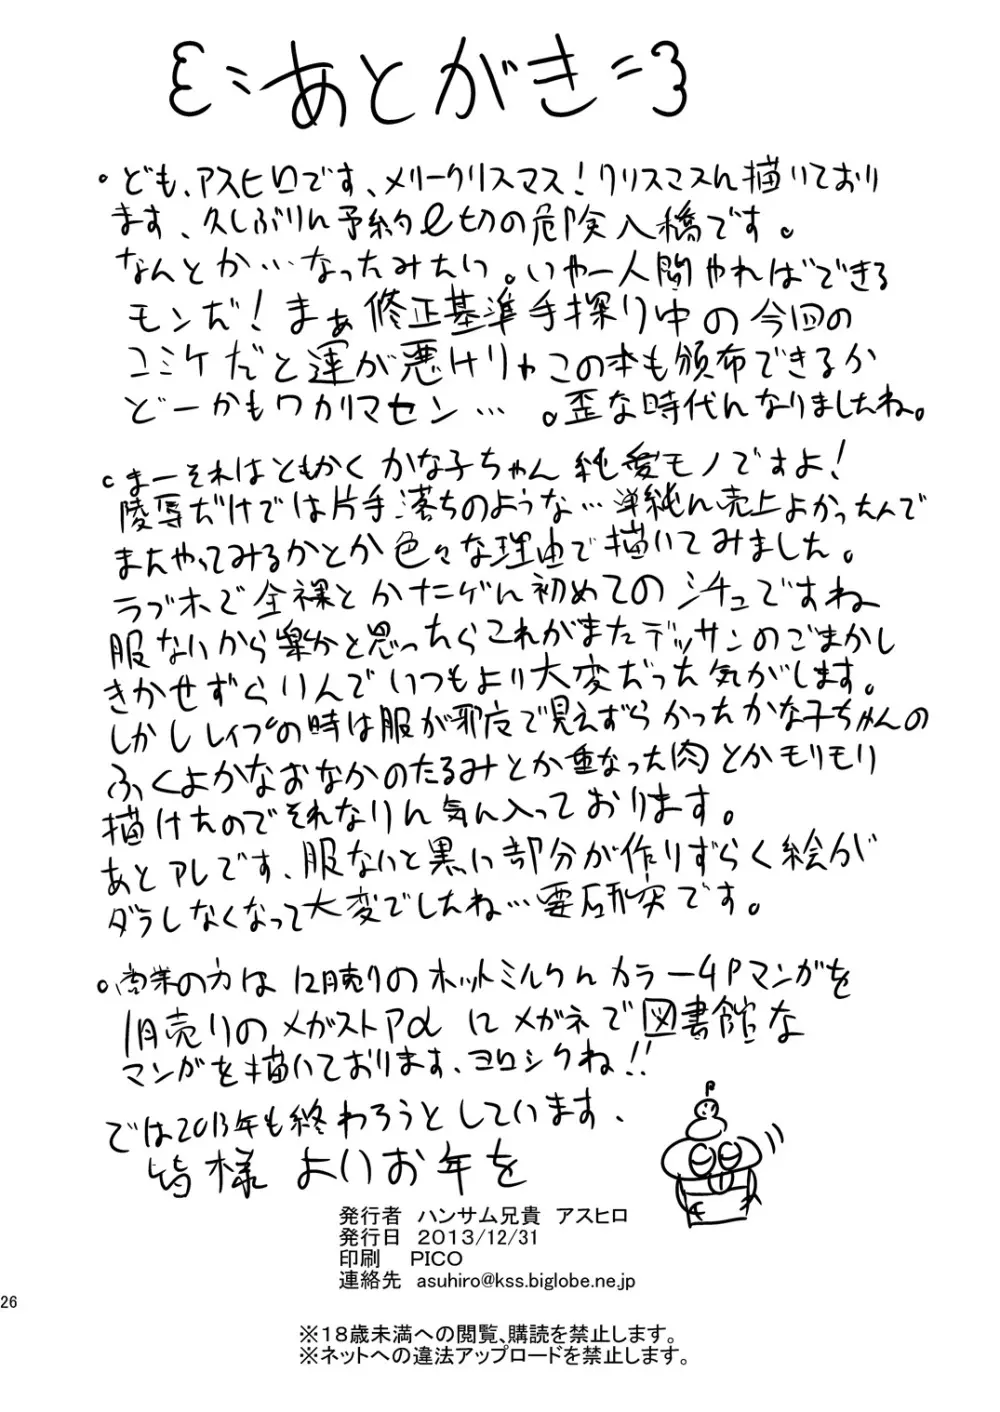 あとがき
・ども、アスヒロです、メリークリスマス！クリスマスに描いており
ます、久しぶりに予約〆切の危険入稿です。
なんとか…なったみたい。いやー人間やればできる
モンだ！まぁ修正基準手探り中の今回の
コミケだと運が悪けりゃこの本も頒布できるか
どーかもワカリマセン…。歪な時代になりましたね。
・まーそれはともかくかな子ちゃん純愛モノですよ！
陵辱だけでは片手落ちのような…単純に売上よかったんで
またやってみるかとか色々な理由で描いてみました。
ラブホで全裸とかたしか初めてのシチュですね
服ないから楽かと思ったらこれがまたデッサンのごまかし
きかせずらいんでいつもより大変だった気がします。
しかしレイプの時は服が邪魔で見えずらかったかな子ちゃんの
ふくよかなおなかのたるみとか重なった肉とかモリモリ
描けたのでそれなりに気に入っております。
あとアレです、服ないと黒い部分が作りずらく絵が
ダラしなくなって大変でしたね…要研究です。
・商業の方は12月売りのホットミルクにカラー4Pマンガを
1月売りのメガストアαにメガネで図書館な
マンガを描いております、ヨロシクね!!
では2013年も終わろうとしています、
皆様よいお年を
発行者 ハンサム兄貴 アスヒロ
発行日 2013/12/31
印刷 PICO
連絡先 asuhiro@kss.biglobe.ne.jp
26
※18歳未満への閲覧、購読を禁止します。
※ネットへの違法アップロードを禁止します。